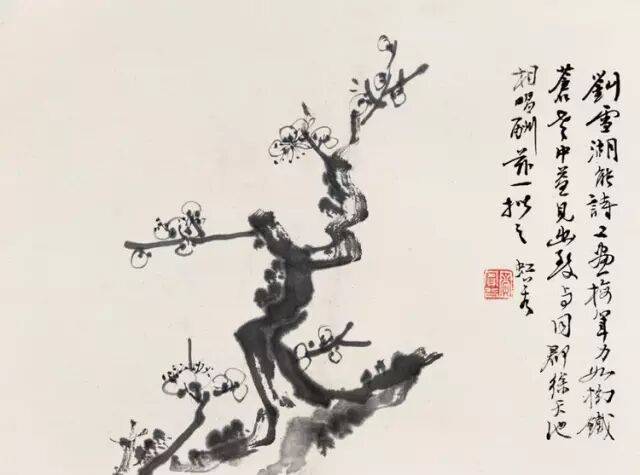 劉雪湖能詩工畫梅筆力如鐵
蒼老中益見幽致与同郡徐天池
相唱酬茲一拟之 虹叟